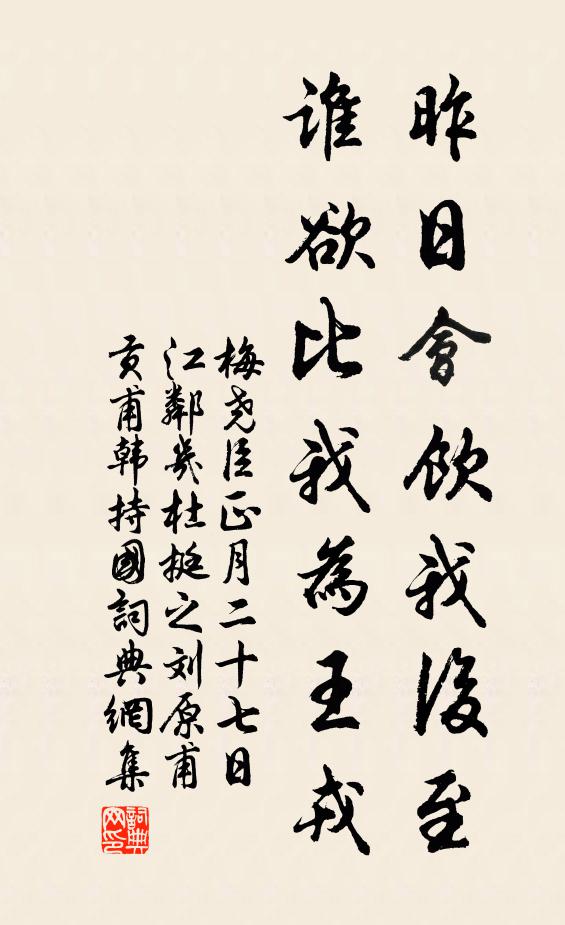 昨日會飲我後至
誰欲比我為王戎
梅尧臣正月二十七日
江鄰幾杜挺之刘原甫
贡甫韩持國詞典網集
詞典網印